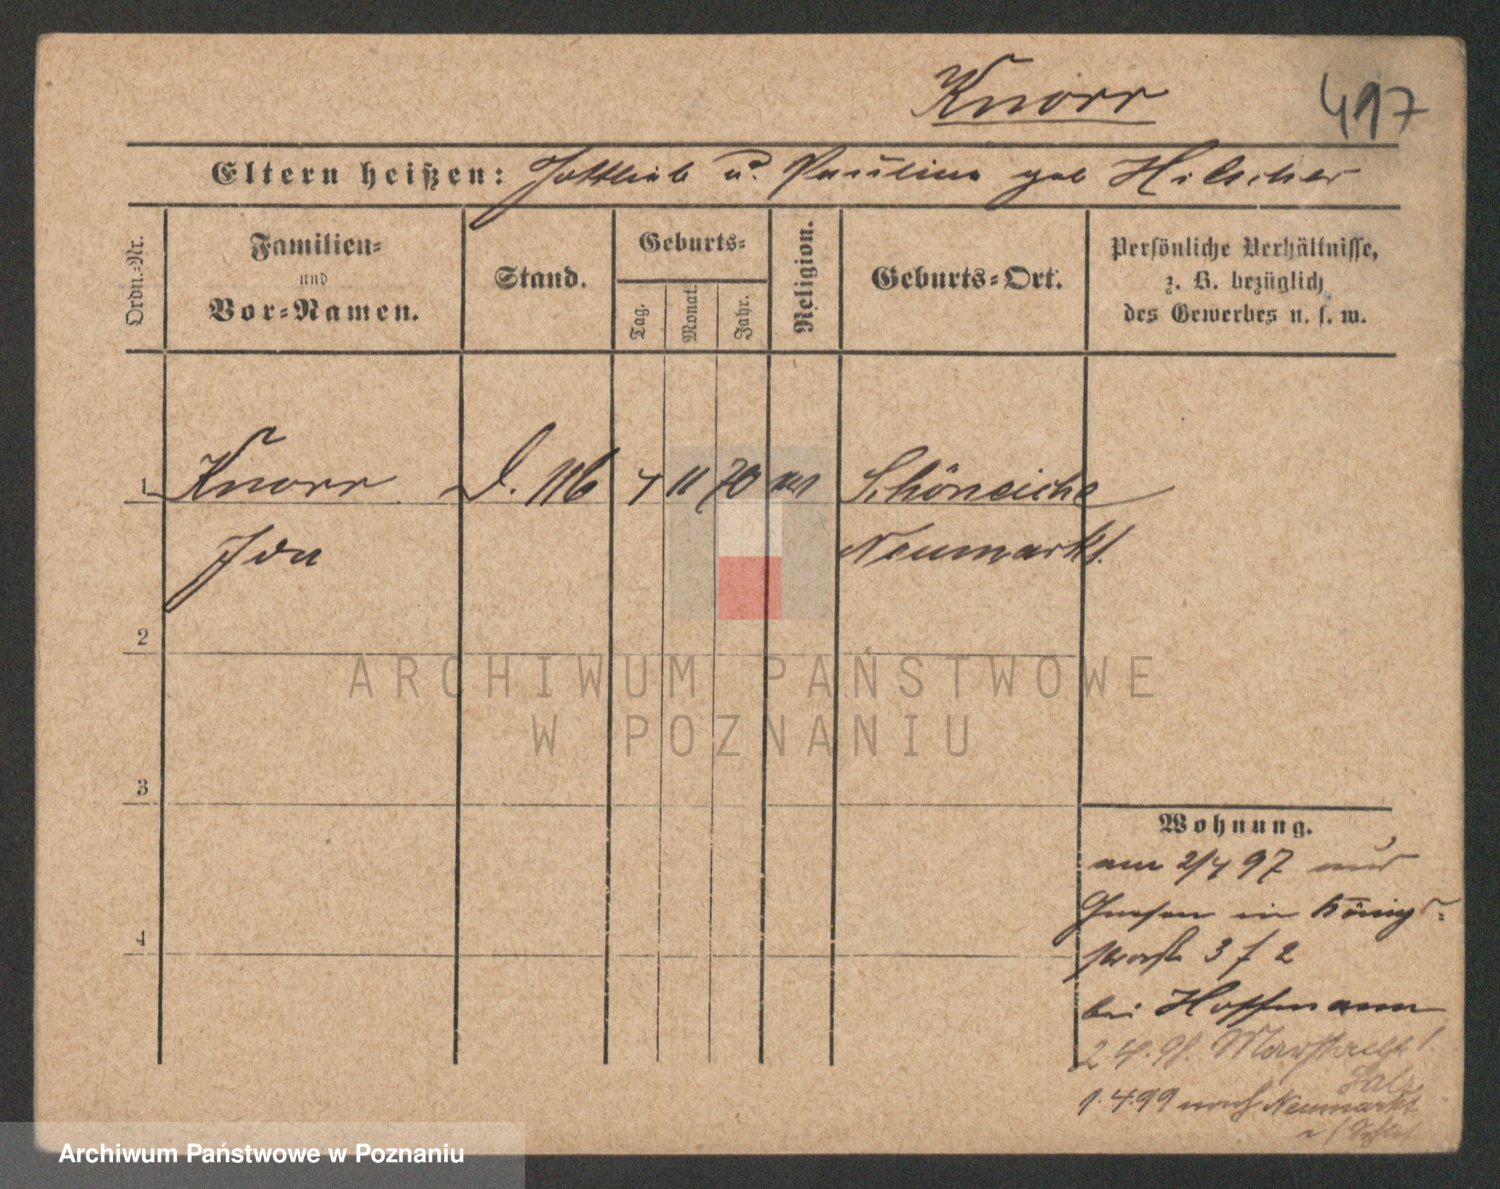 Knorr 497
Eltern heißen: Gottlieb u. Pauline geb Hilscher
Ordn.-Nr.
Familien-
und
Vor-Namen.
Stand.
Geburts-
Tag.
Monat.
Jahr.
Religion.
Geburts-Ort.
Persönliche Verhältnisse,
z. B. bezüglich
des Gewerbes u. s. w.
1 Knorr D. 116 11 70 Schöneiche
Ida Neumarkt.
2
3
4
Wohnung.
am 2/4 97 aus
Gnesen in Königs-
strasse 3 f 2
bei Hoffmann
2.4.98.
1.4.99 nach Neumarkt
ARCHIWUM PAŃSTWOWE
W POZNANIU
Archiwum Państwowe w Poznaniu